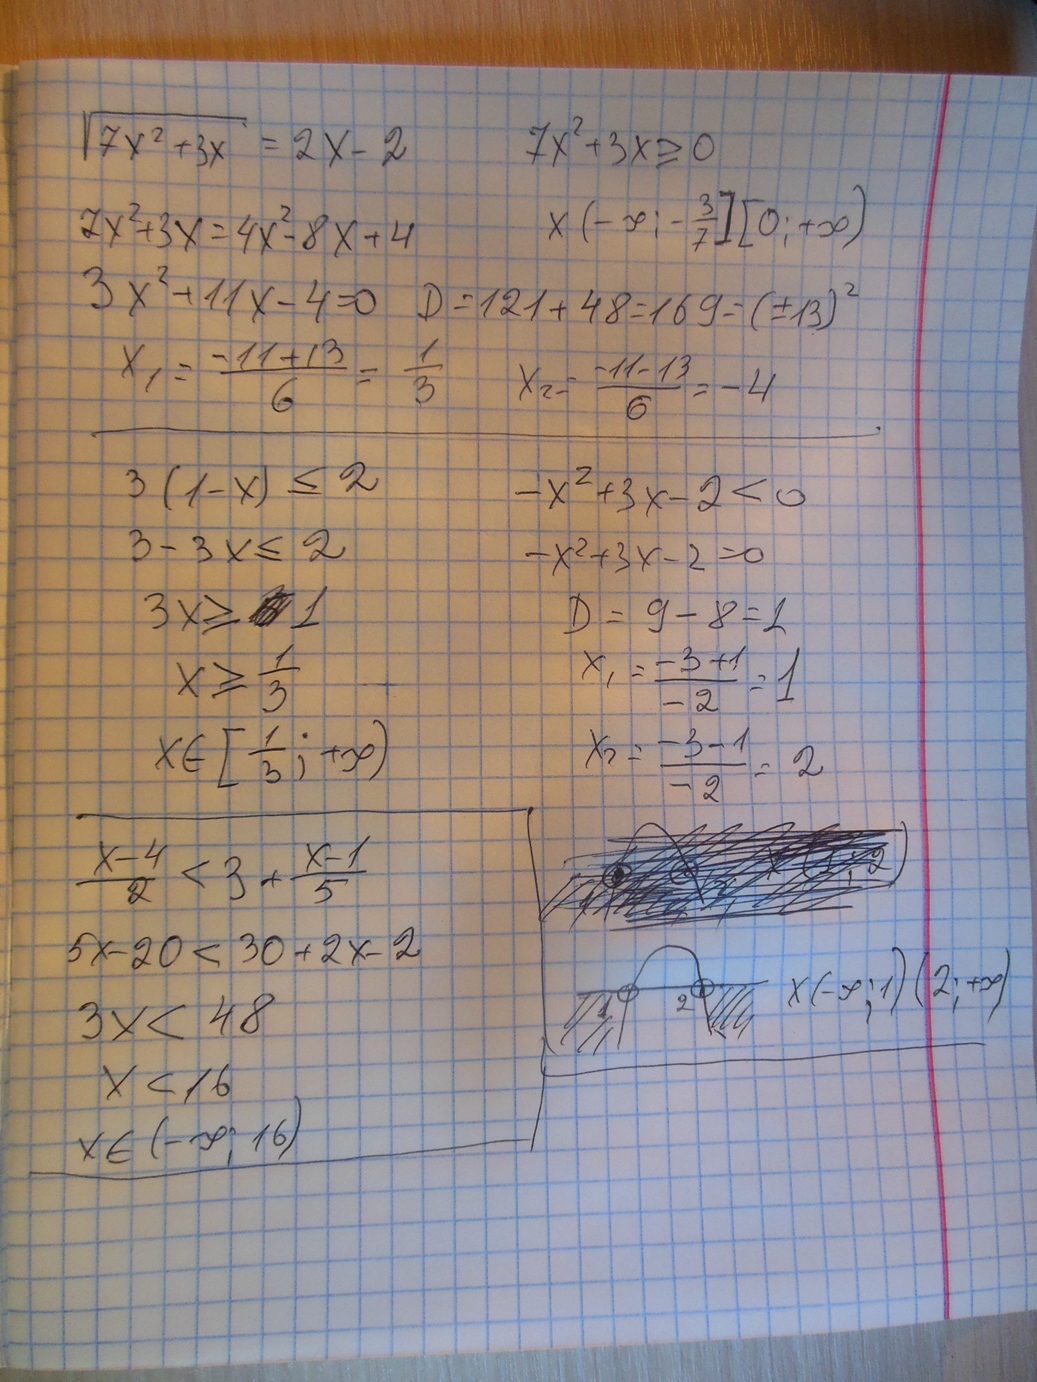 √(7x²+3x) = 2x-2
7x²+3x≥0
7x²+3x=4x²-8x+4
x(-∞;-3/7][0;+∞)
3x²+11x-4=0 D=121+48=169=(±13)²
x₁=(-11+13)/6=1/3
x₂=(-11-13)/6=-4
3(1-x)≤2
3-3x≤2
3x≥1
x≥1/3
x∈[1/3;+∞)
-x²+3x-2<0
-x²+3x-2=0
D=9-8=1
x₁=(-3+1)/-2=1
x₂=(-3-1)/-2=2
(x-4)/2<3+(x-1)/5
5x-20<30+2x-2
3x<48
x<16
x∈(-∞;16)
1 2 x(-∞;1)(2;+∞)